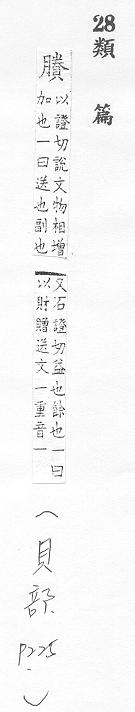 28類篇
賸
以證切說文物相增
加也一曰送也副也
又石證切益也餘也一曰
以財贈送文一重音一
(貝部 P225)